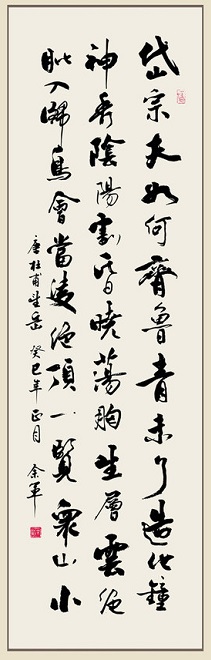 岱宗夫如何齊魯青未了造化鐘
神秀陰陽割昏曉蕩胸生層雲決
眦入歸鳥會當凌絕頂一覽衆山小
唐杜甫望岳 癸巳年正月 余軍